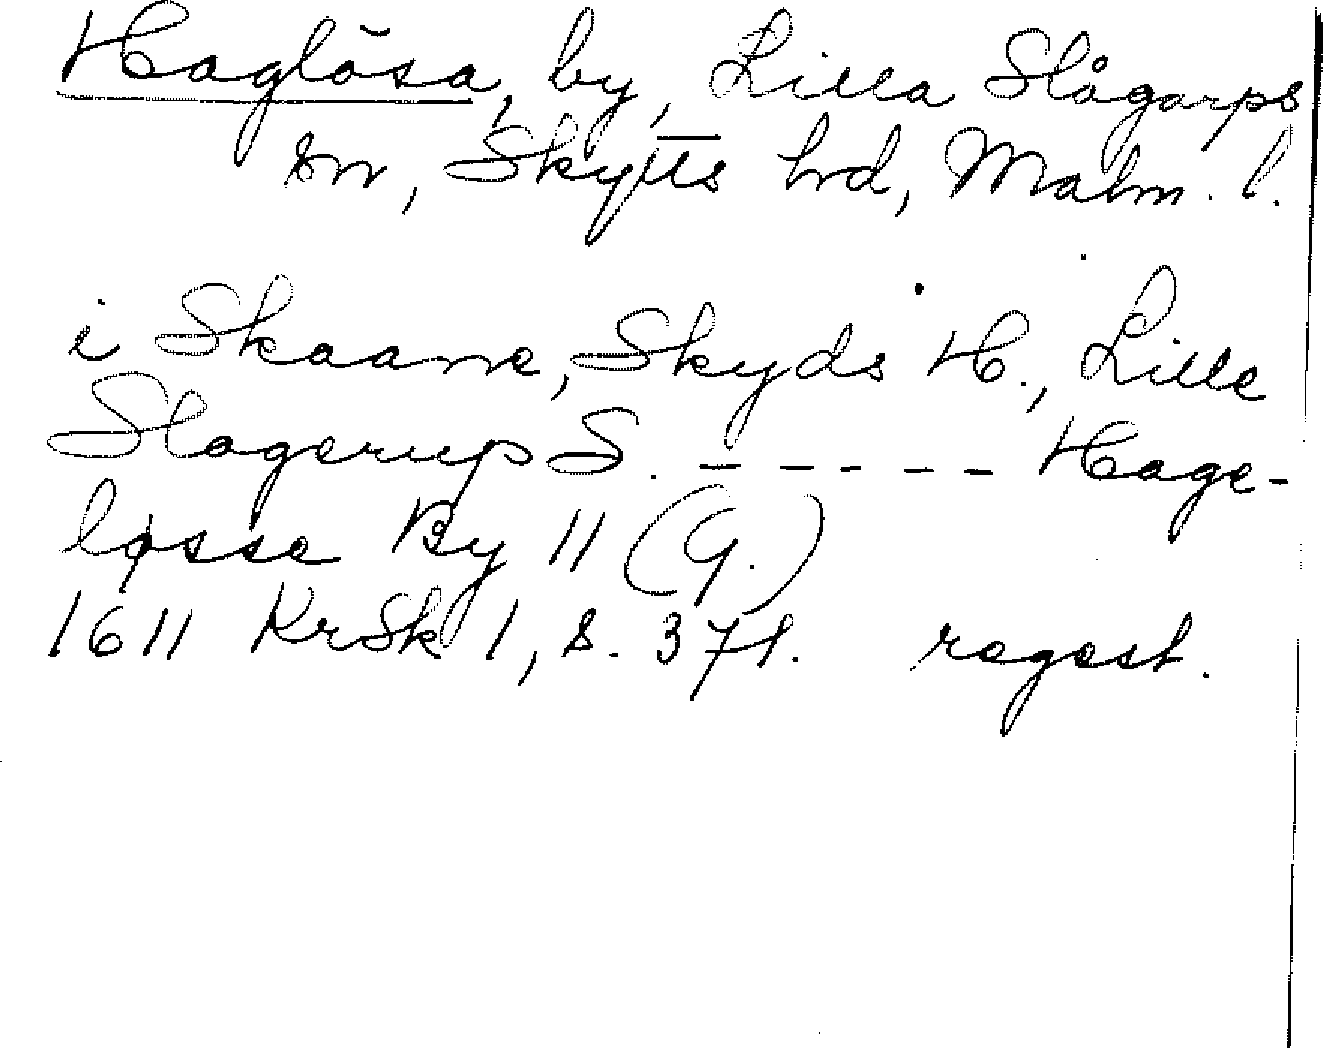 Haglösa, by, Lilla Slågarps
sn, Skytts hd, Malm. l.
i Skaane, Skyds H., Lille
Slagerup S. ------ Hage-
løsse By 11 (G.)
1611 KrSk 1, s. 371. regest.